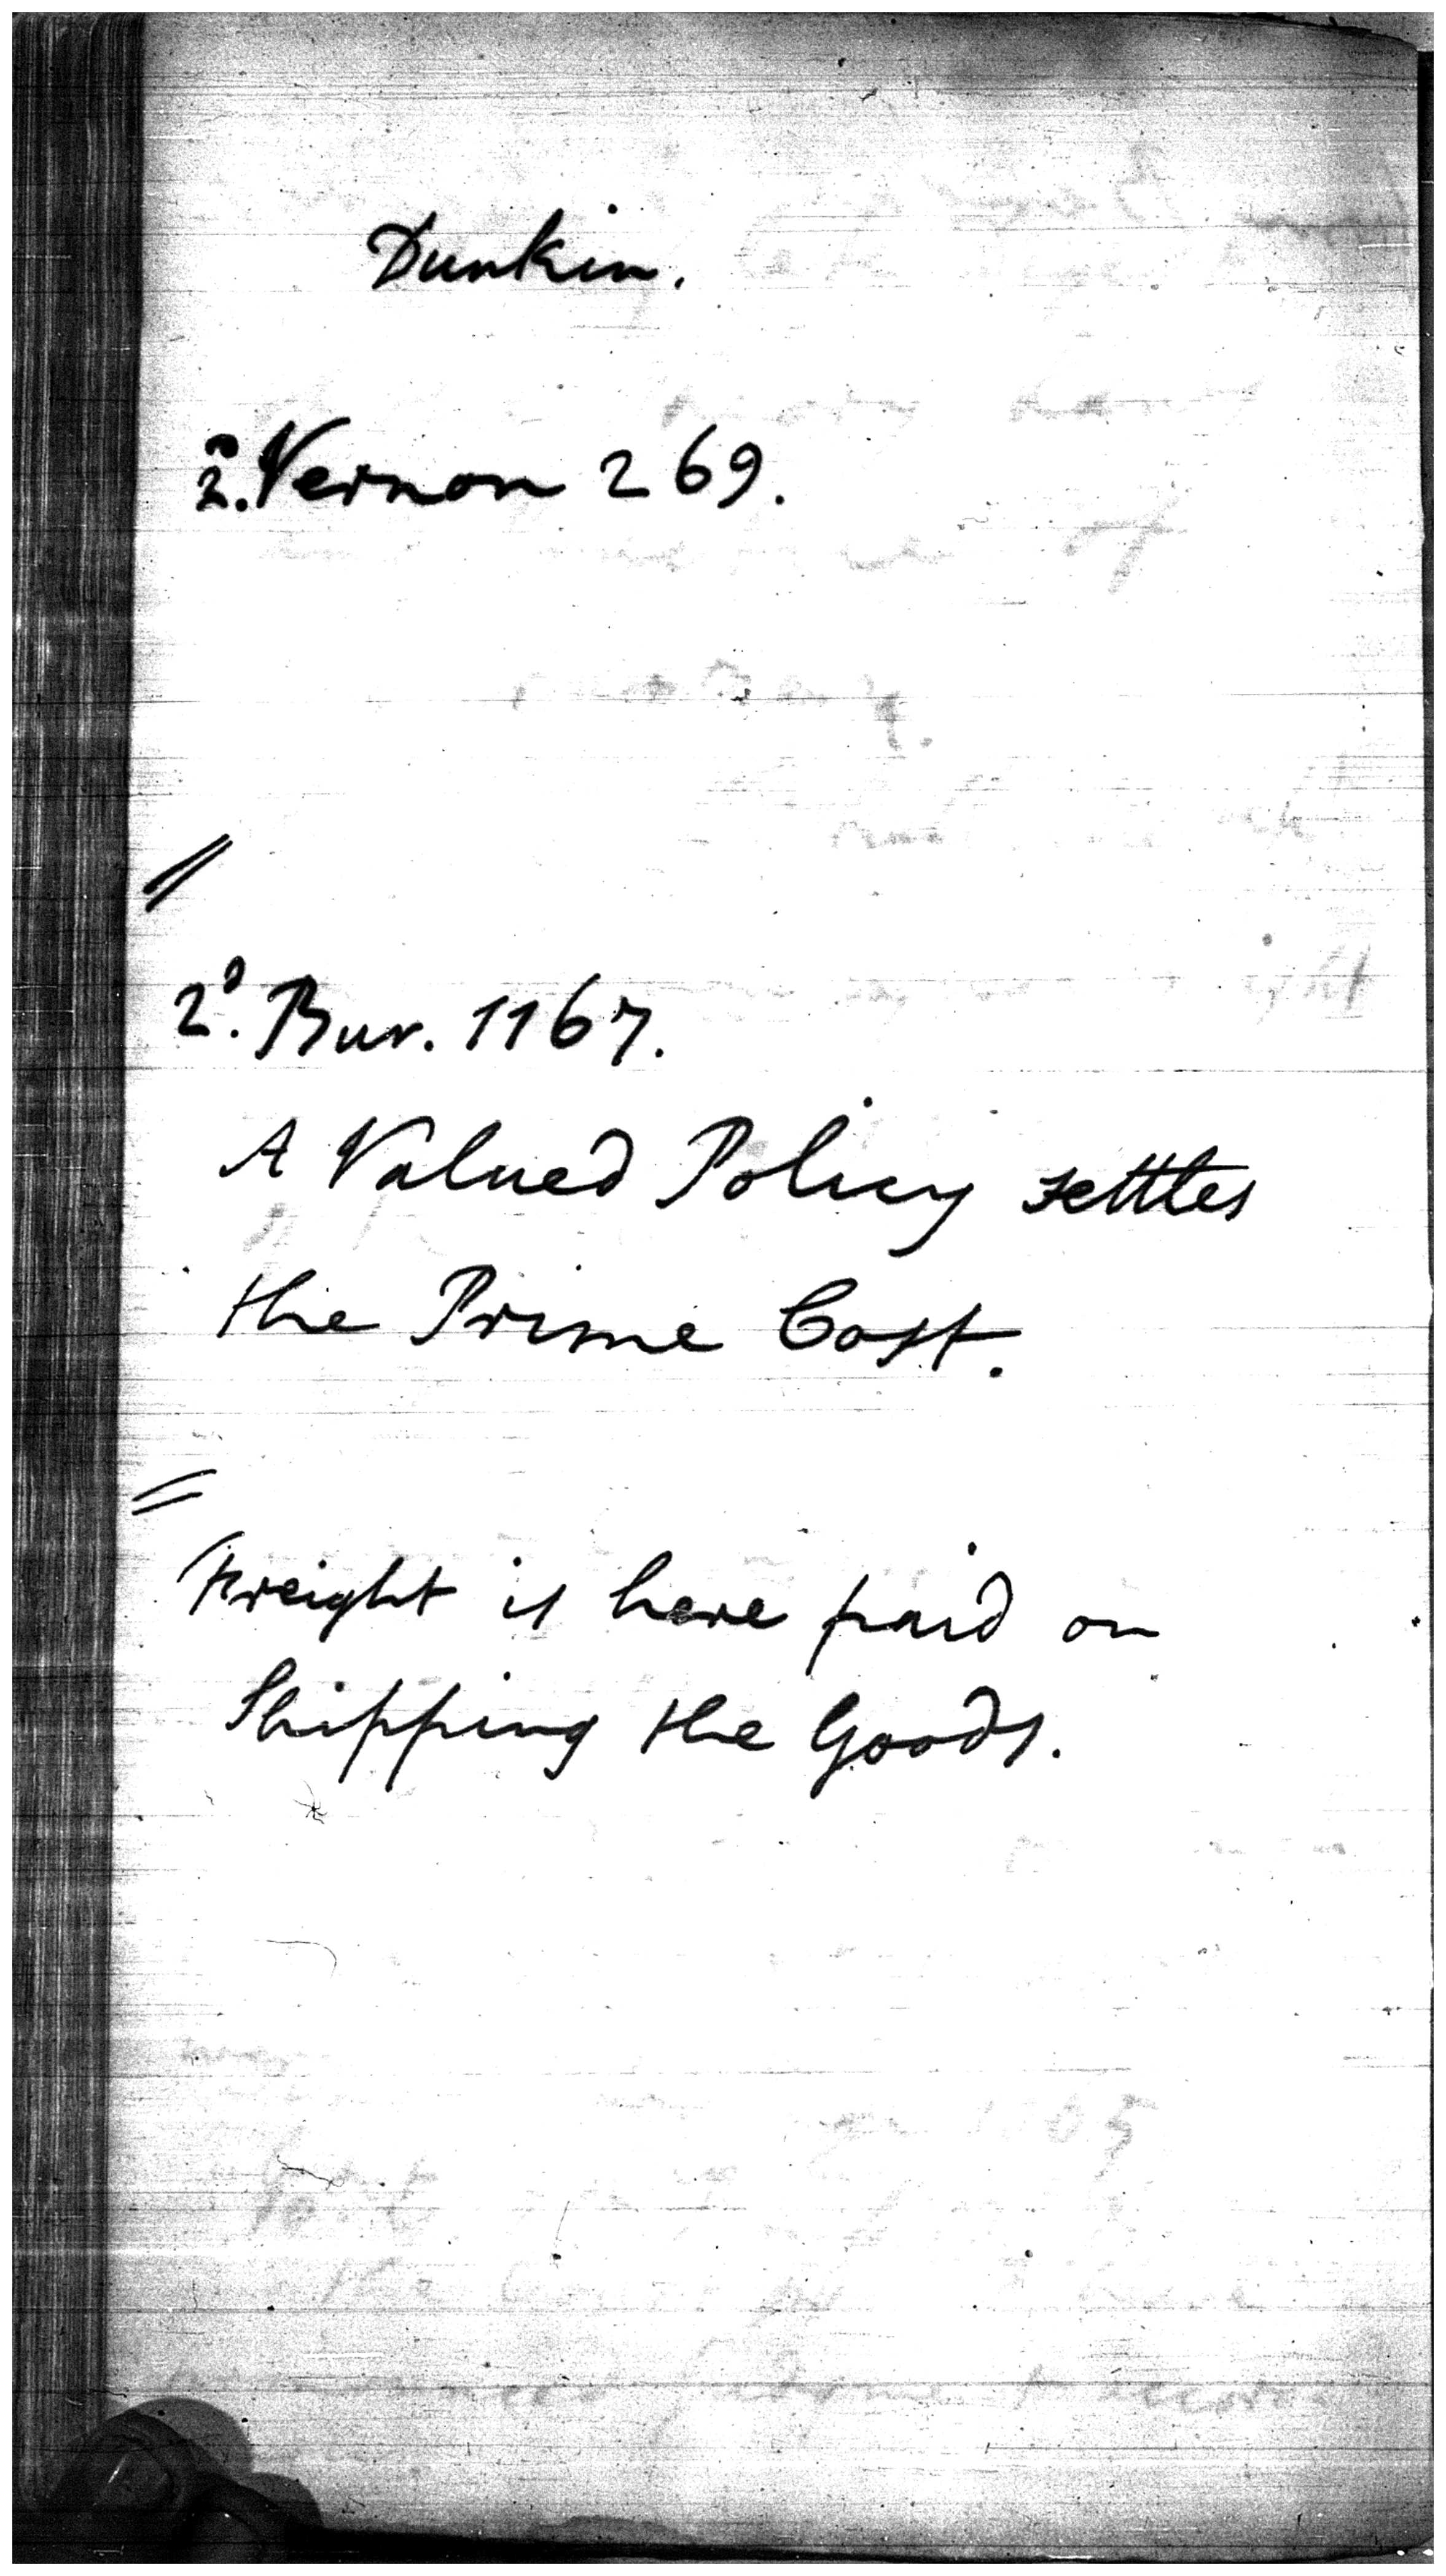 Dunkin.
2. Vernon 269.
//
2d. Bur. 1167.
A Valued Policy settles
the Prime Cost.
=
Freight is here paid on
Shipping the Goods.